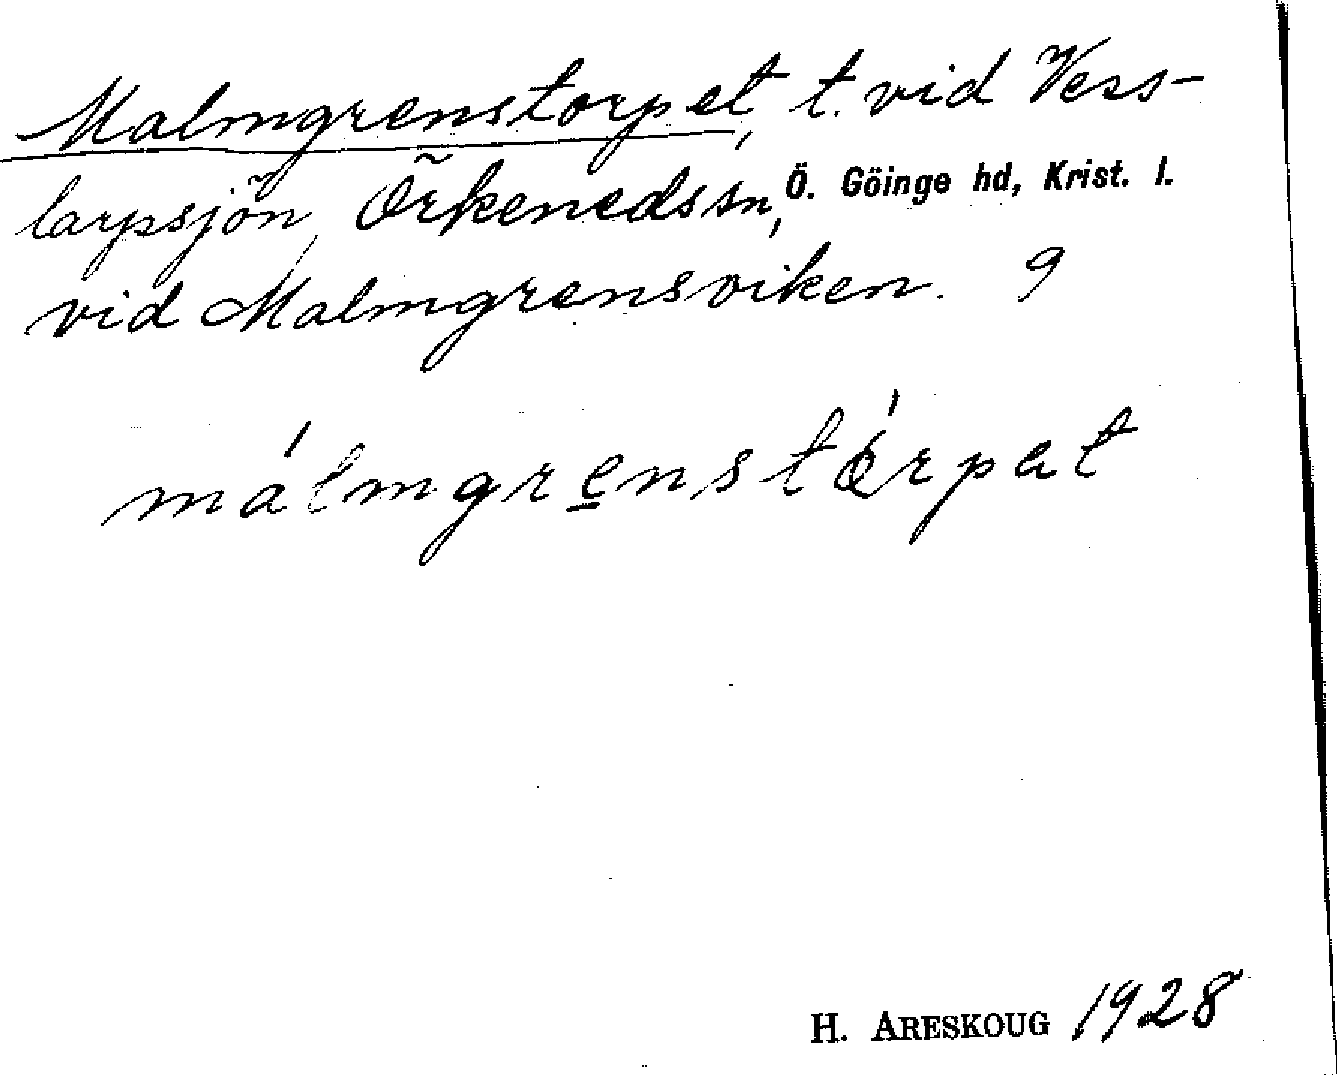 Malmgrenstorpet, t. vid Vess-
larpsjön, Örkeneds sn, Ö. Göinge hd, Krist. l.
vid Malmgrensviken. 9
málmgrenstórpat
H. ARESKOUG 1928